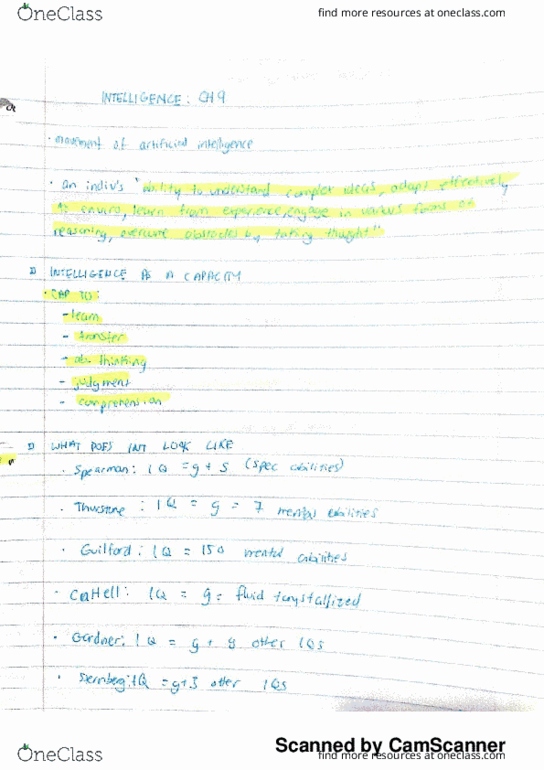 OneClass
find more resources at oneclass.com
INTELLIGENCE: CH 9
· movement of artificial intelligence
· an indiv's "ability to understand complex ideas, adapt effectively
to enviro, learn from experience, engage in various forms of
reasoning, overcome obstacles by taking thought"
I) INTELLIGENCE AS A CAPACITY
· CAP TO:
- learn
- transfer
- ab. thinking
- judgment
- comprehension
I) WHAT DOES INT LOOK LIKE
· Spearman: IQ = g + s (spec abilities)
· Thurstone : IQ = g = 7 mental abilities
· Guilford: IQ = 150 mental abilities
· Cattell: IQ = g = fluid + crystallized
· Gardner: IQ = g + 8 other IQs
· Sternberg: IQ = g + 3 other IQs
Scanned by CamScanner
OneClass
find more resources at oneclass.com